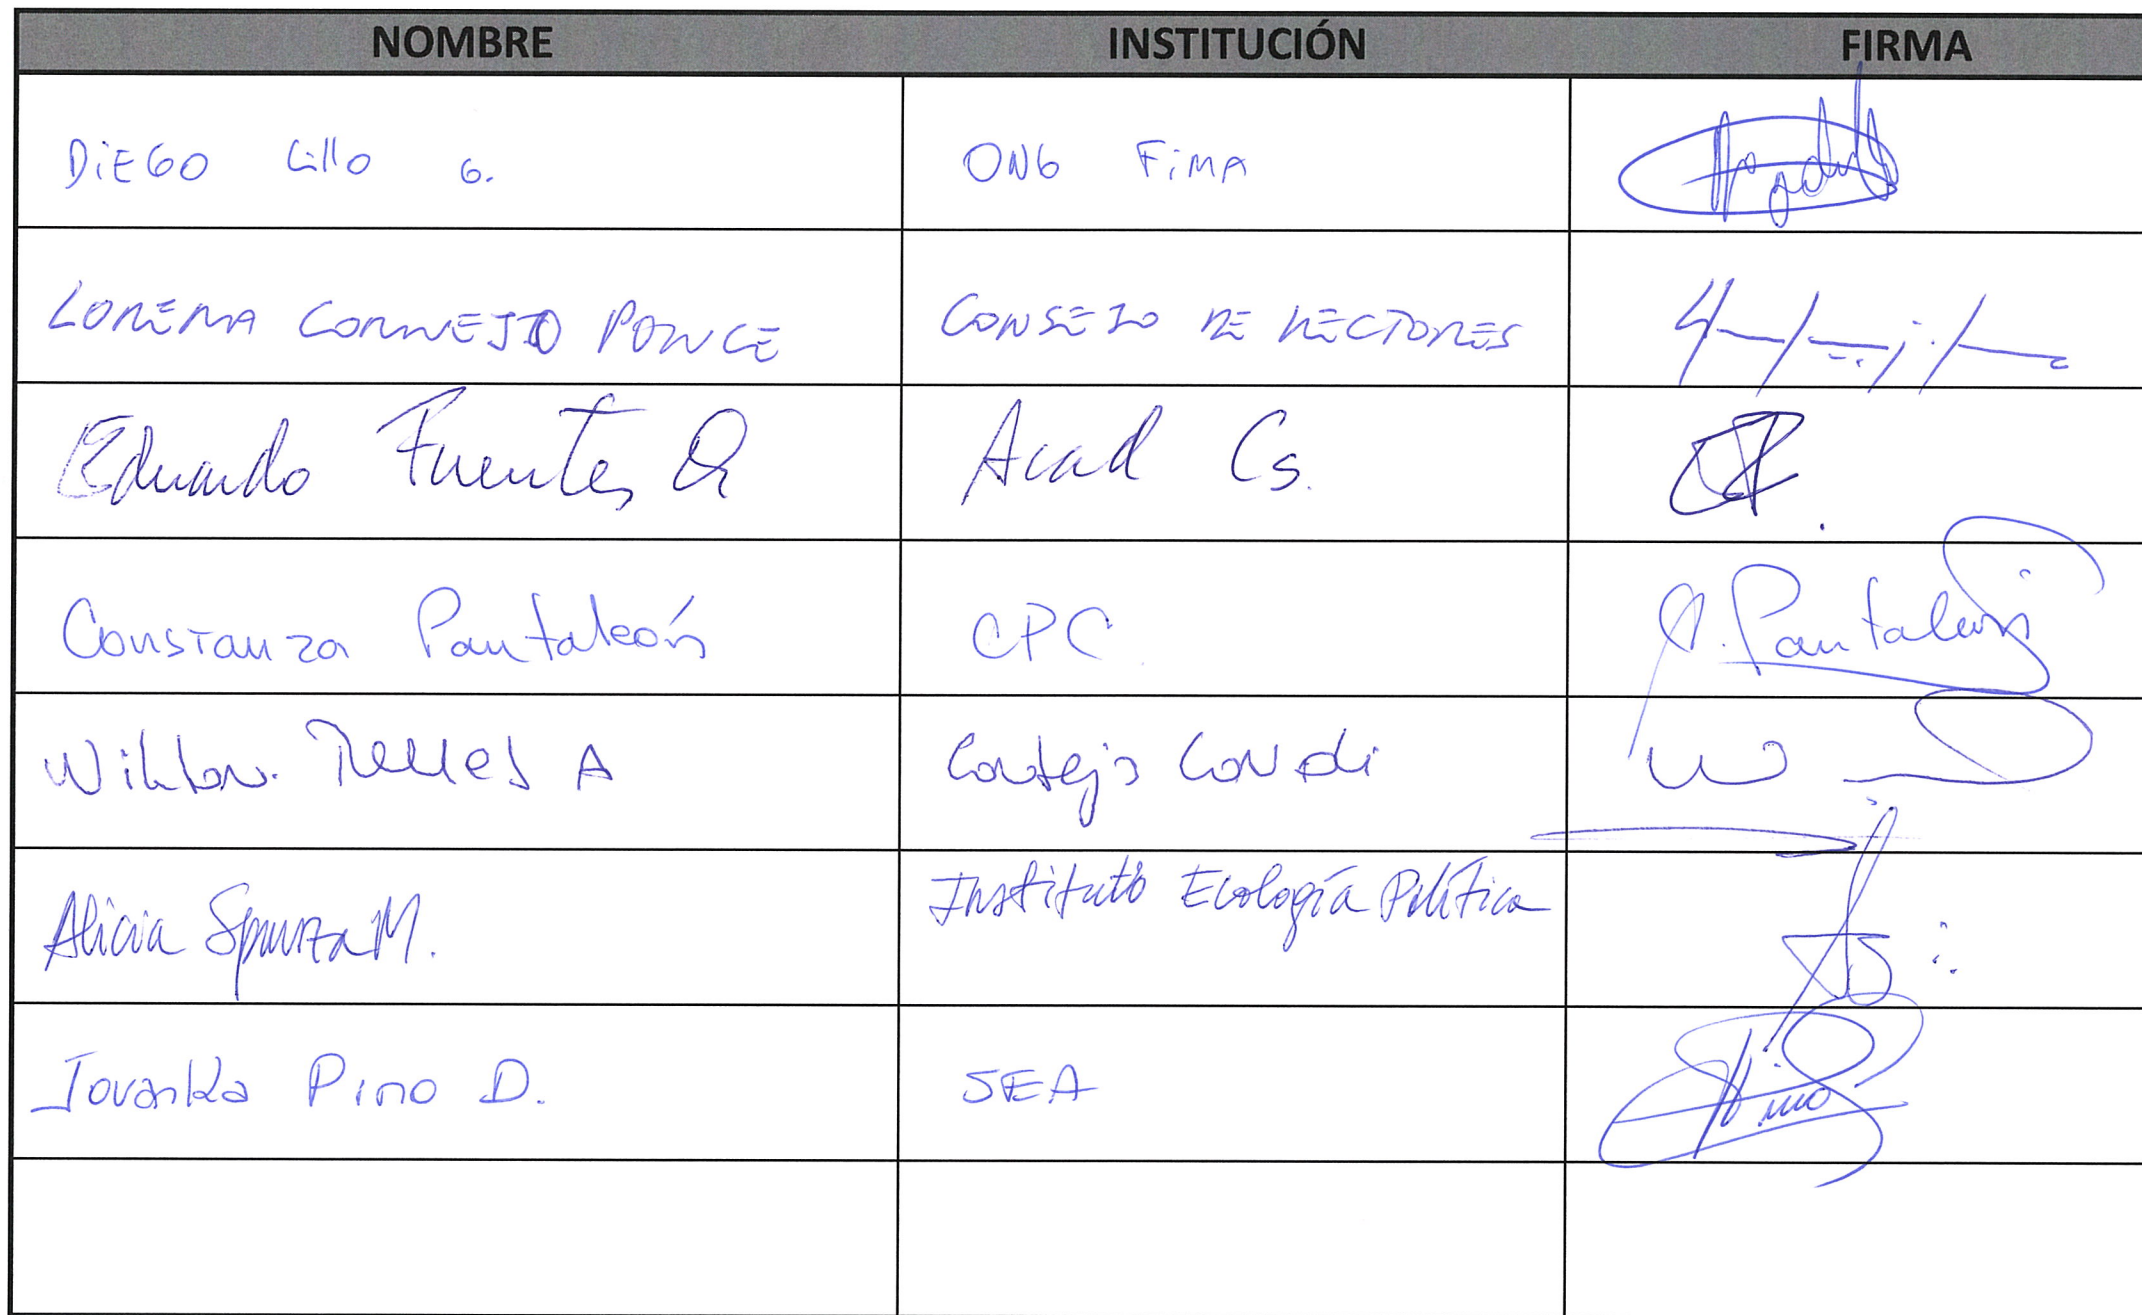 NOMBRE INSTITUCIÓN FIRMA
DiEGO Lillo G. ONG FiMA
LORENA CORNEJO PONCE CONSEJO DE RECTORES
Eduardo Fuentes Q Acad Cs.
Constanza Pantaleón CPC C. Pantaleón
A Consejo
Alicia M. Instituto Ecología Política
Jovanka Pino D. SEA Pino